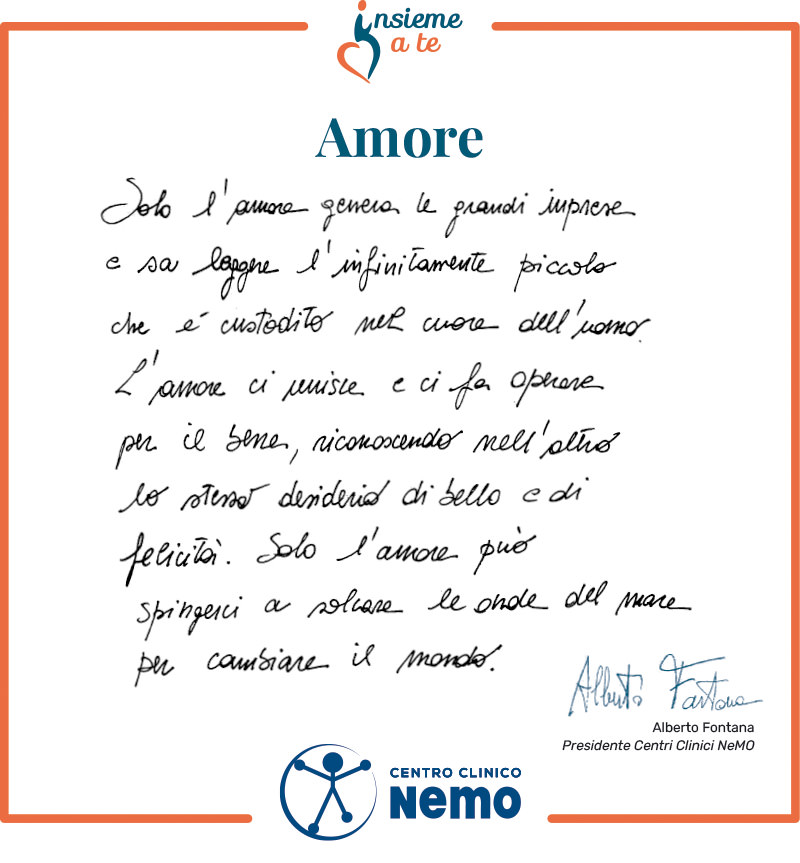 insieme
a te
Amore
Solo l'amore genera le grandi imprese
e sa leggere l'infinitamente piccolo
che é custodito nel cuore dell'uomo.
L'amore ci unisce e ci fa operare
per il bene, riconoscendo nell'altro
lo stesso desiderio di bello e di
felicità. Solo l'amore può
spingerci a solcare le onde del mare
per cambiare il mondo.
Alberto Fontana
Alberto Fontana
Presidente Centri Clinici NeMO
CENTRO CLINICO
NEMO